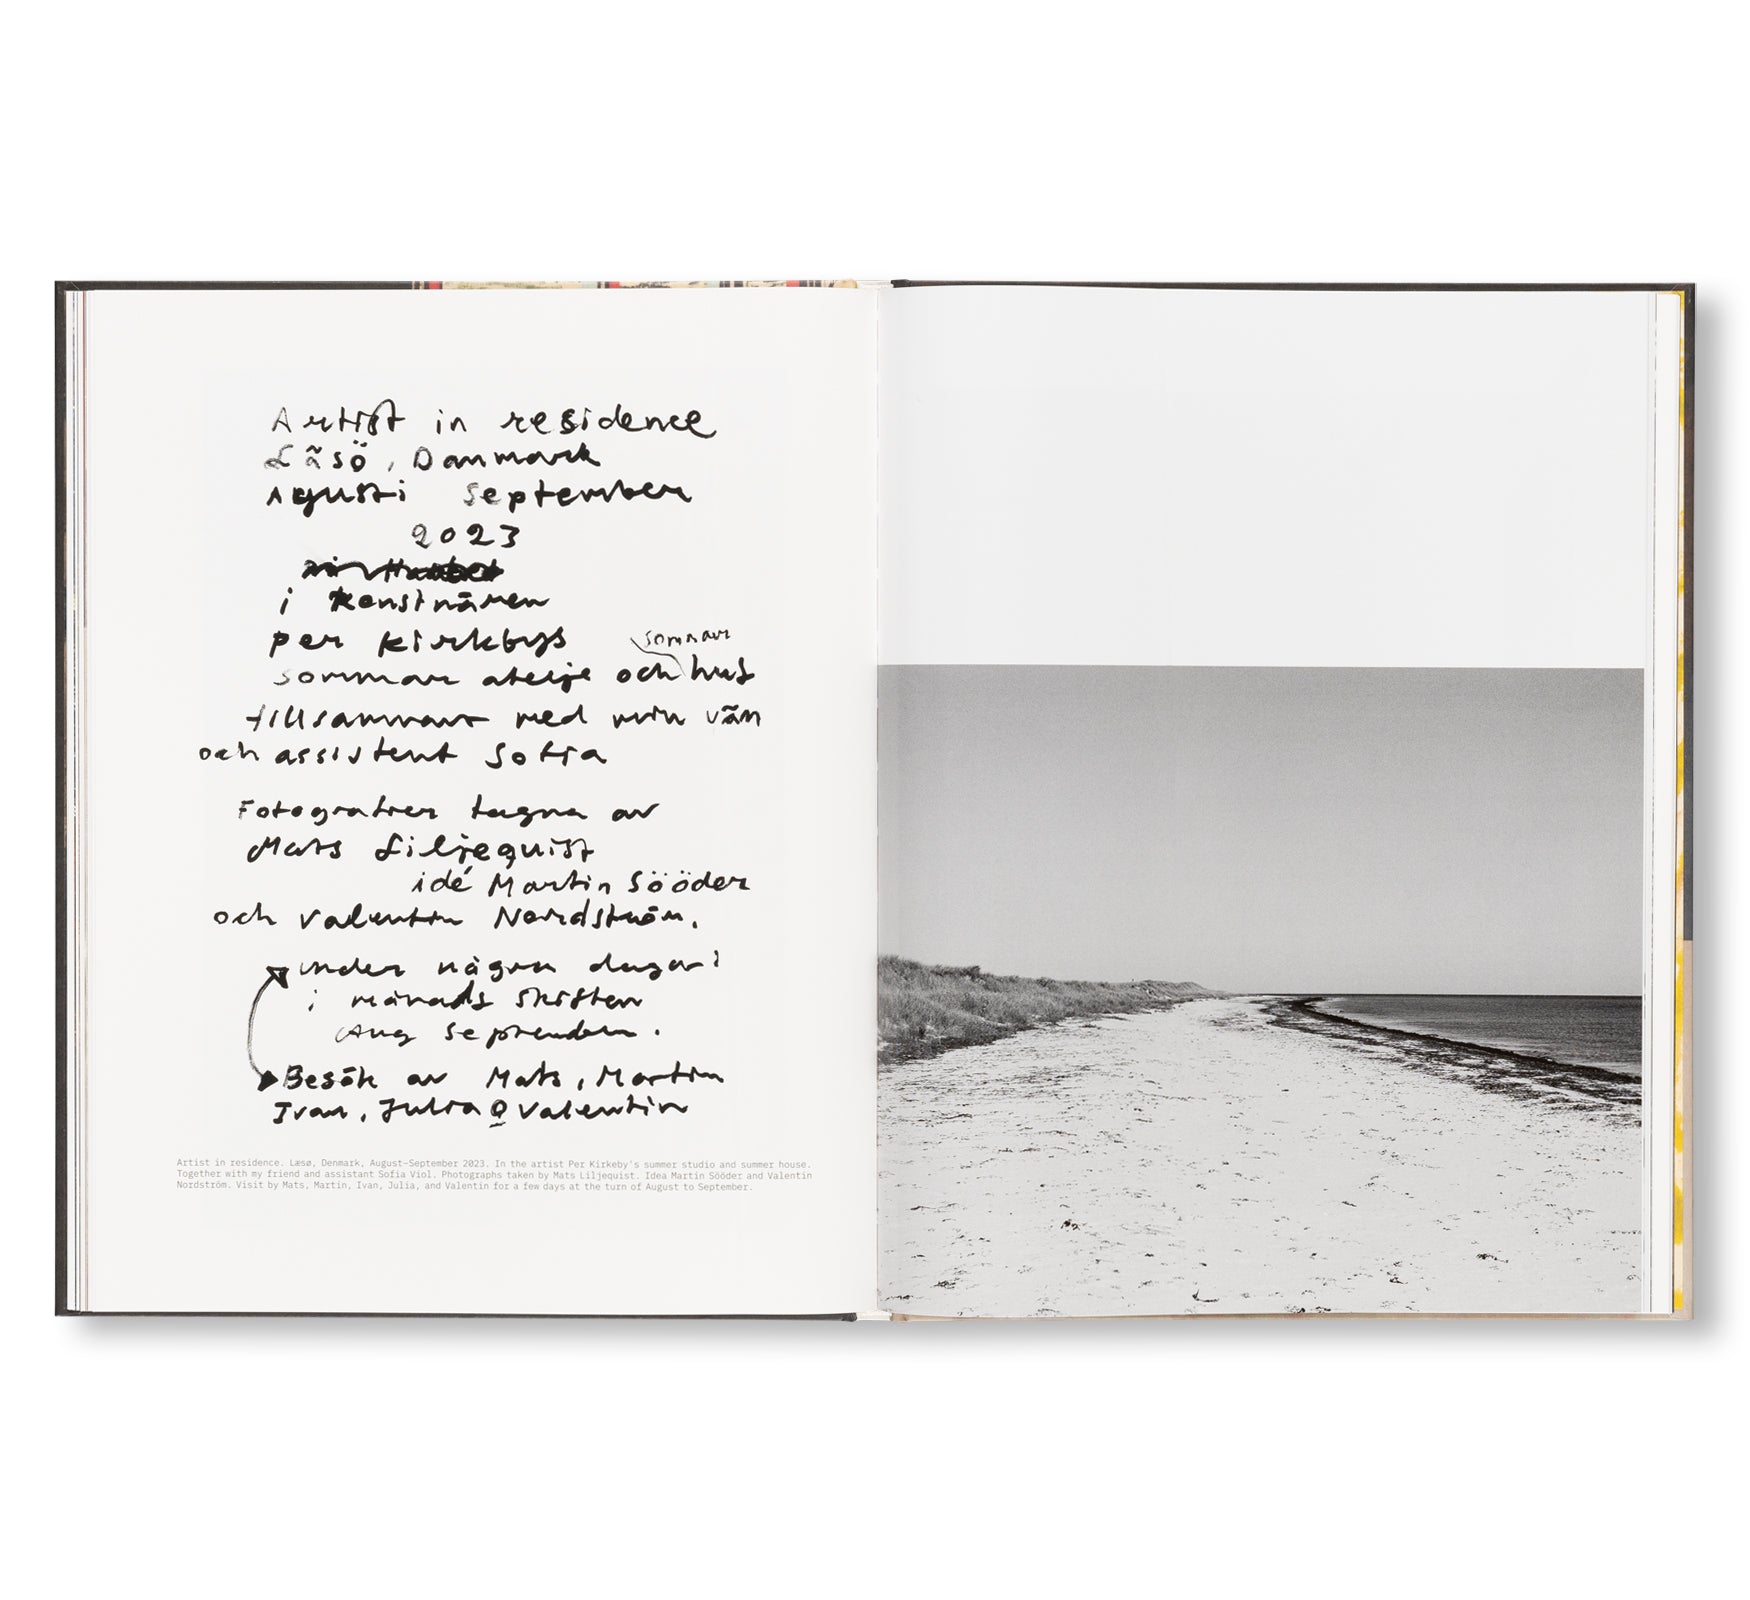 Artist in residence
Läsö, Danmark
Agusti September
2023
i konstnären
per Kirkbys sommar
sommar atelje och hus
tillsammans med min vän
och assistent Sofia
Fotografier tagna av
Mats Liljequist
idé Martin Sööder
och Valentin Nordström.
under några dagar i
i månads skiften
Aug September.
Besök av Mats, Martin
Ivan, Julia o Valentin
Artist in residence. Læsø, Denmark, August–September 2023. In the artist Per Kirkeby's summer studio and summer house.
Together with my friend and assistant Sofia Viol. Photographs taken by Mats Liljequist. Idea Martin Sööder and Valentin
Nordström. Visit by Mats, Martin, Ivan, Julia, and Valentin for a few days at the turn of August to September.